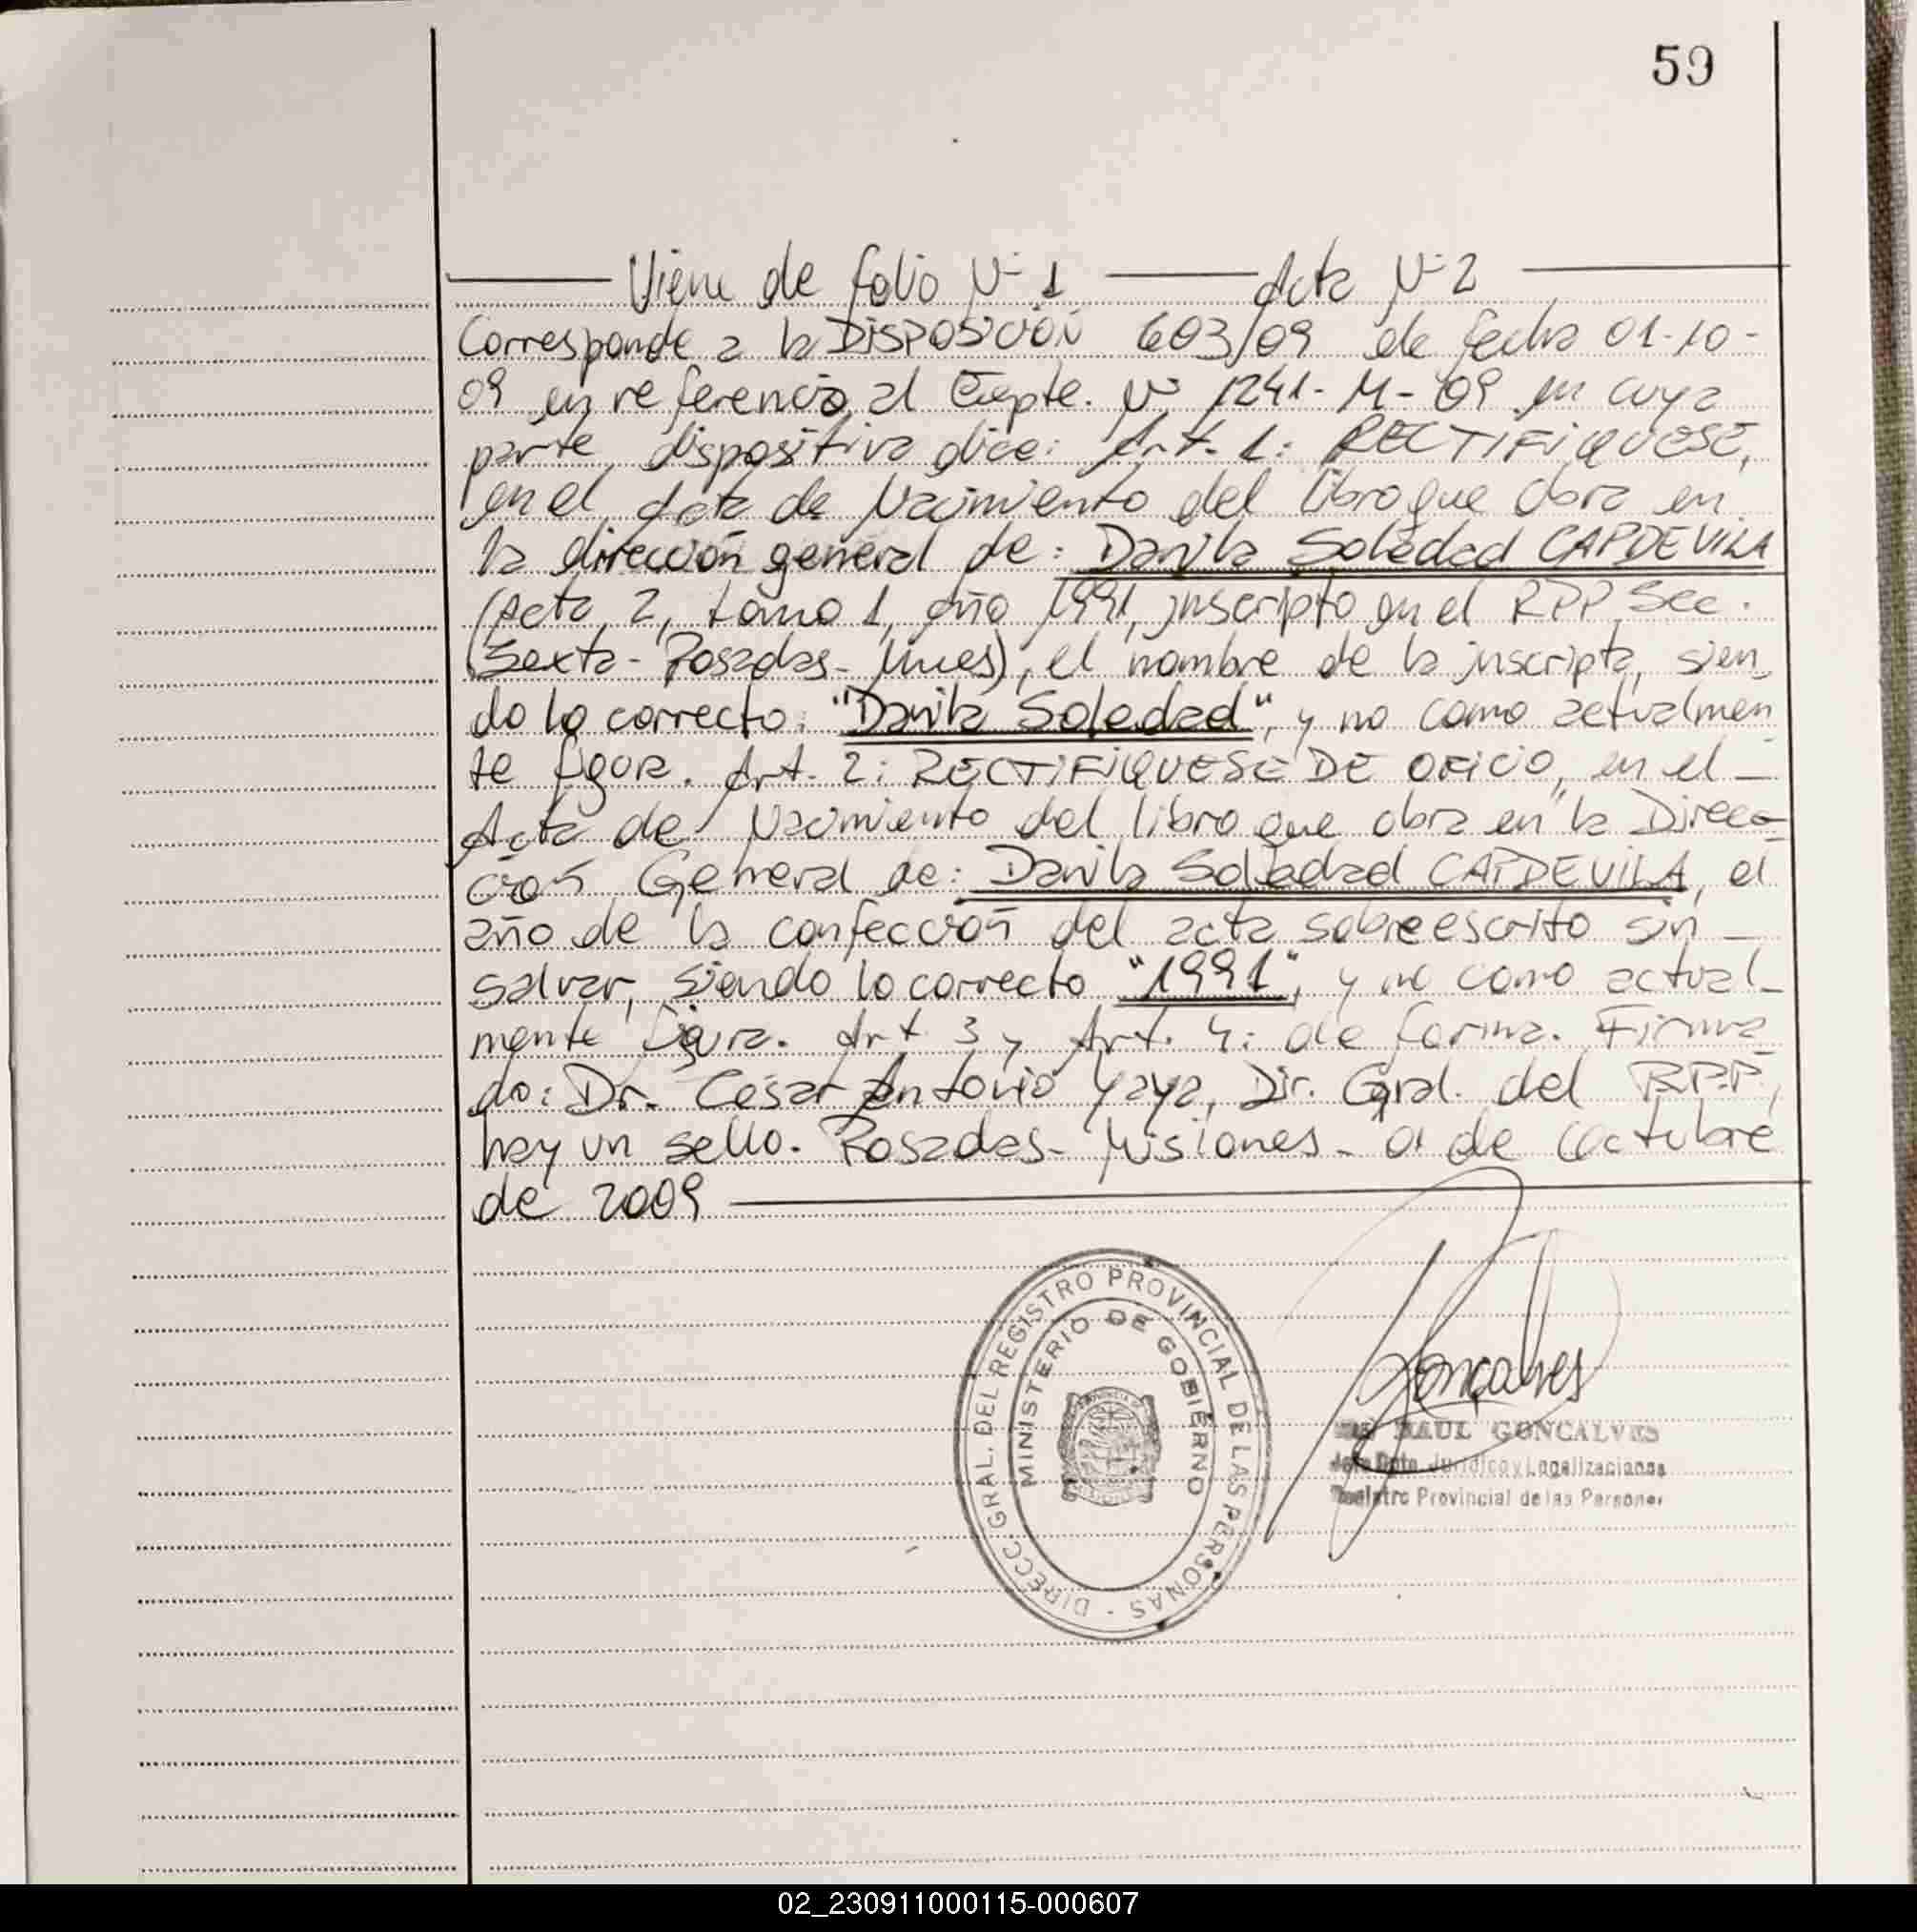 59
Viene de folio Nº 1 Acta Nº 2
Corresponde a la DISPOSICIÓN 603/09 de fecha 01-10-
09 en referencia al Expte. Nº 1241-M-09 en cuya
parte dispositiva dice: Art. 1: RECTIFIQUESE,
en el Acta de Nacimiento del libro que obra en
la dirección general de: Danila Soledad CAPDEVILA
(Acta 2, tomo 1, año 1991, inscripto en el RPP Sec.
Sexta - Posadas - Mnes), el nombre de la inscripta, sien
do lo correcto: "Danila Soledad", y no como actualmen
te figura. Art. 2: RECTIFIQUESE DE OFICIO, en el
Acta de Nacimiento del libro que obra en la Direc-
ción General de: Danila Soledad CAPDEVILA, el
año de la confección del acta sobreescrito sin
salvar, siendo lo correcto "1991", y no como actual-
mente figura. Art 3 y Art. 4: de forma. Firma
do: Dr. César Antonio Yaya, Dir. Gral. del RPP,
hay un sello. Posadas - Misiones - 01 de Octubre
de 2009
DIRECC. GRAL. DEL REGISTRO PROVINCIAL DE LAS PERSONAS -
MINISTERIO DE GOBIERNO
Gonçalves
RAUL GONCALVES
Jefe Dpto. Jurídico y Legalizaciones
Registro Provincial de las Personas
02_230911000115-000607